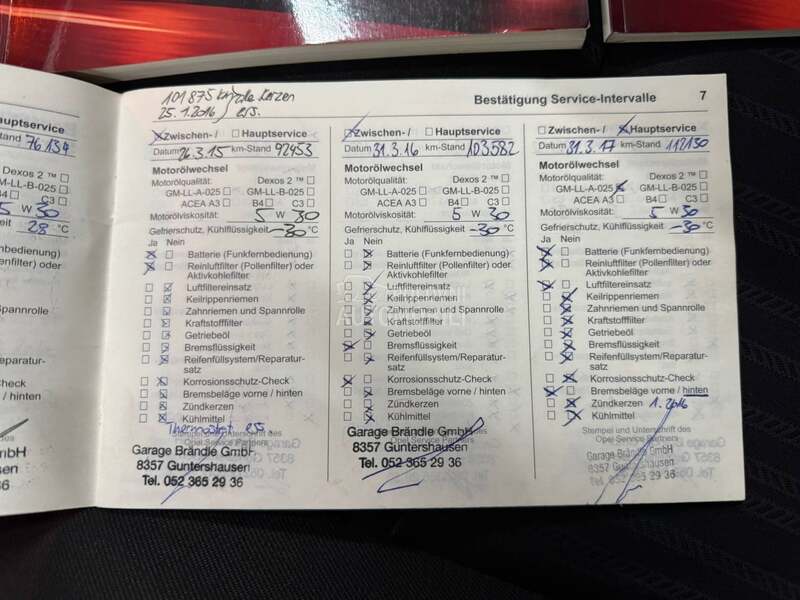 Hauptservice
Stand 76134
Dexos 2 ™
GM-LL-B-025
C3
5 W 30
28 °C
Spannrolle
Check
hinten
mbH
ausen
36
101 875 km, alle Kerzen
25.1.2016 ers.
Bestätigung Service-Intervalle 7
Zwischen- / Hauptservice
Datum 26.3.15 km-Stand 92453
Motorölwechsel
Motorölqualität: Dexos 2 ™
GM-LL-A-025 GM-LL-B-025
ACEA A3 B4 C3
Motorölviskosität 5 W 30
Gefrierschutz, Kühlflüssigkeit -30 °C
Ja Nein
Batterie (Funkfernbedienung)
Reinluftfilter (Pollenfilter) oder
Aktivkohlefilter
Luftfiltereinsatz
Keilrippenriemen
Zahnriemen und Spannrolle
Kraftstofffilter
Getriebeöl
Bremsflüssigkeit
Reifenfüllsystem/Reparatur-
satz
Korrosionsschutz-Check
Bremsbeläge vorne / hinten
Zündkerzen
Kühlmittel
Thermostat ers.
Stempel und Unterschrift des
Opel Service Partners
Garage Brändle GmbH
8357 Guntershausen
Tel. 052 365 29 36
Zwischen- / Hauptservice
Datum 31.3.16 km-Stand 103582
Motorölwechsel
Motorölqualität: Dexos 2 ™
GM-LL-A-025 GM-LL-B-025
ACEA A3 B4 C3
Motorölviskosität 5 W 30
Gefrierschutz, Kühlflüssigkeit -30 °C
Ja Nein
Batterie (Funkfernbedienung)
Reinluftfilter (Pollenfilter) oder
Aktivkohlefilter
Luftfiltereinsatz
Keilrippenriemen
Zahnriemen und Spannrolle
Kraftstofffilter
Getriebeöl
Bremsflüssigkeit
Reifenfüllsystem/Reparatur-
satz
Korrosionsschutz-Check
Bremsbeläge vorne / hinten
Zündkerzen
Kühlmittel
Garage Brändle GmbH
8357 Guntershausen
Tel. 052 365 29 36
Zwischen- / Hauptservice
Datum 31.3.17 km-Stand 112130
Motorölwechsel
Motorölqualität: Dexos 2 ™
GM-LL-A-025 GM-LL-B-025
ACEA A3 B4 C3
Motorölviskosität 5 W 30
Gefrierschutz, Kühlflüssigkeit -30 °C
Ja Nein
Batterie (Funkfernbedienung)
Reinluftfilter (Pollenfilter) oder
Aktivkohlefilter
Luftfiltereinsatz
Keilrippenriemen
Zahnriemen und Spannrolle
Kraftstofffilter
Getriebeöl
Bremsflüssigkeit
Reifenfüllsystem/Reparatur-
satz
Korrosionsschutz-Check
Bremsbeläge vorne / hinten
Zündkerzen 1.2016
Kühlmittel
Stempel und Unterschrift des
Opel Service Partners
Garage Brändle GmbH
8357 Guntershausen
Tel. 052 365 29 36